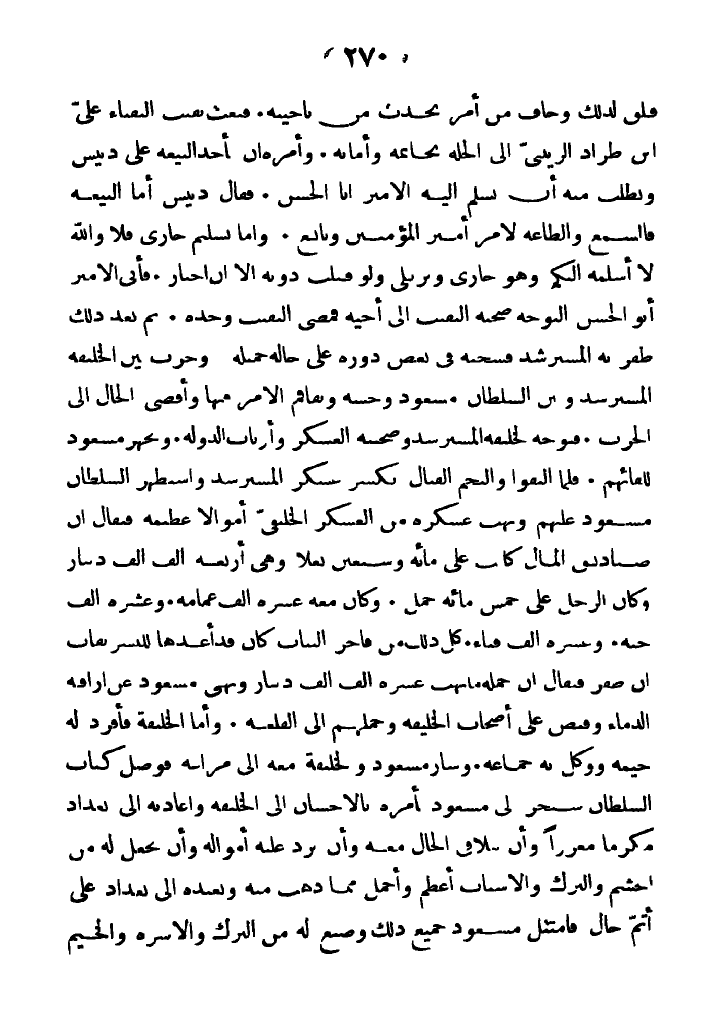 ﴿ ٢٧٠ ﴾
فقلق لذلك وخاف من أمر يحدث من ناحيته، فبعث نقيب النقباء علىّ
ابن طراد الزينبىّ الى الحلة بخاتمه وأمانه، وأمره ان يأخذ البيعة على دبيس
ويطلب منه أن يسلم اليه الامير ابا الحسن، فقال دبيس أما البيعة
فالسمع والطاعة لامر أمير المؤمنين وبايع، واما تسليم جارى فلا والله
لا أسلمه اليكم وهو جارى ونزيلى ولو قتلت دونه الا ان اختار، فأبى الامير
أبو الحسن التوجه صحبة النقيب الى أخيه فمضى النقيب وحده، ثم بعد ذلك
ظفر به المسترشد فسجنه فى بعض دوره على حالة جميلة وجرت بين الخليفة
المسترشد وبين السلطان مسعود وحشة وتفاقم الامر فيها وأفضى الحال الى
الحرب، فتوجه الخليفة المسترشد وصحبته العسكر وأرباب الدولة، وتجهز مسعود
للقائهم، فلما التقوا والتحم القتال انكسر عسكر المسترشد واستظهر السلطان
مسعود عليهم ونهب عسكره من العسكر الخليفىّ أموالا عظيمة فيقال ان
صناديق المال كانت على مائة وسبعين بغلا وهى أربعة آلاف ألف دينار
وكان الرحل على خمس مائة جمل، وكان معه عشرة آلاف عمامة، وعشرة آلاف
جبة، وعشرة آلاف قباء، كل ذلك من فاخر الثياب كان قد أعدها للتشريفات
ان ظفر فيقال ان جملة ما نهب عشرة آلاف ألف دينار ونهى مسعود عن اراقة
الدماء وقبض على أصحاب الخليفة وحملهم الى القلعة، وأما الخليفة فأفرد له
خيمة ووكل به جماعة، وسار مسعود والخليفة معه الى مراغة فوصل كتاب
السلطان سنجر الى مسعود يأمره بالاحسان الى الخليفة واعادته الى بغداد
مكرما معززاً وأن يتلافى الحال معه وأن يرد عليه أمواله وأن يجعل له من
الحشم والبرك والاسباب أعظم وأجمل مما ذهب منه ويعيده الى بغداد على
أتمّ حال فامتثل مسعود جميع ذلك وصنع له من البرك والاسرة والخيم